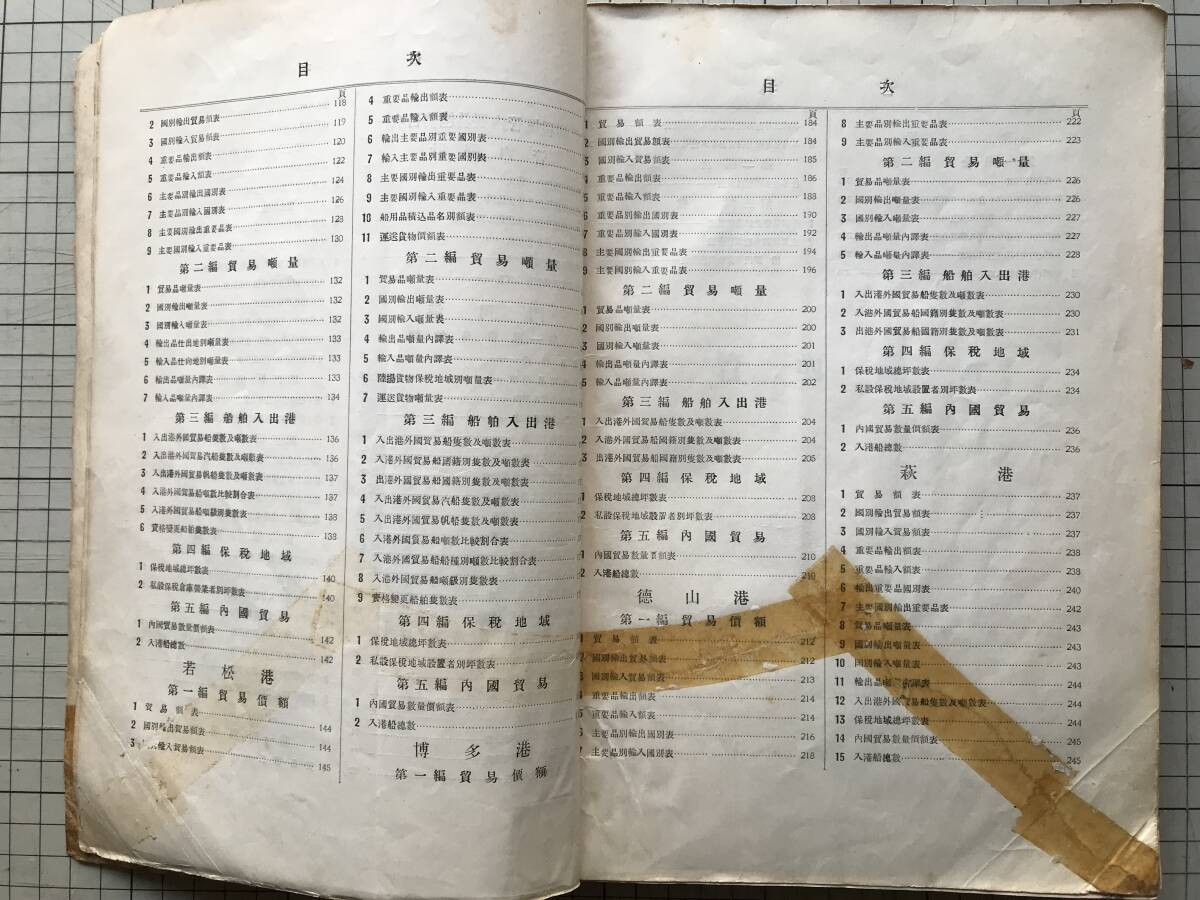 目次
頁
118
2 國別輸出貿易額表 119
3 國別輸入貿易額表 120
4 重要品輸出額表 122
5 重要品輸入額表 124
6 主要品別輸出國別表 126
7 主要品別輸入國別表 128
8 主要國別輸出重要品表 130
9 主要國別輸入重要品表
第二編 貿易噸量
1 貿易品噸量表 132
2 國別輸出噸量表 132
3 國別輸入噸量表 132
4 輸出品仕出地別噸量表 133
5 輸入品仕向地別噸量表 133
6 輸出品噸量內譯表 133
7 輸入品噸量內譯表 134
第三編 船舶入出港
1 入出港外國貿易船隻數及噸數表 136
2 入出港外國貿易汽船隻數及噸數表 136
3 入出港外國貿易帆船隻數及噸數表 137
4 入港外國貿易船噸數比較割合表 137
5 入港外國貿易船噸級別隻數表 138
6 資格變更船舶隻數表 138
第四編 保稅地域
1 保稅地域總坪數表 140
2 私設保稅倉庫營業者別坪數表 140
第五編 內國貿易
1 內國貿易數量價額表 142
2 入港船總數 142
若松港
第一編 貿易價額
1 貿易額表 144
2 國別輸出貿易額表 144
3 輸入貿易額表 145
4 重要品輸出額表
5 重要品輸入額表
6 輸出主要品別重要國別表
7 輸入主要品別重要國別表
8 主要國別輸出重要品表
9 主要國別輸入重要品表
10 船用品積込品名別額表
11 運送貨物價額表
第二編 貿易噸量
1 貿易品噸量表
2 國別輸出噸量表
3 國別輸入噸量表
4 輸出品噸量內譯表
5 輸入品噸量內譯表
6 陸揚貨物保稅地域別噸量表
7 運送貨物噸量表
第三編 船舶入出港
1 入出港外國貿易船隻數及噸數表
2 入港外國貿易船國籍別隻數及噸數表
3 出港外國貿易船國籍別隻數及噸數表
4 入出港外國貿易汽船隻數及噸數表
5 入出港外國貿易帆船隻數及噸數表
6 入港外國貿易船噸數比較割合表
7 入港外國貿易船船種別噸數比較割合表
8 入港外國貿易船噸級別隻數表
9 資格變更船舶隻數表
第四編 保稅地域
1 保稅地域總坪數表
2 私設保稅地域設置者別坪數表
第五編 內國貿易
1 內國貿易數量價額表
2 入港船總數
博多港
第一編 貿易價額
目次
頁
1 貿易額表 184
2 國別輸出貿易額表 184
3 國別輸入貿易額表 185
4 重要品輸出額表 186
5 重要品輸入額表 188
6 重要品別輸出國別表 190
7 重要品別輸入國別表 192
8 主要國別輸出重要品表 194
9 主要國別輸入重要品表 196
第二編 貿易噸量
1 貿易品噸量表 200
2 國別輸出噸量表 200
3 國別輸入噸量表 201
4 輸出品噸量內譯表 201
5 輸入品噸量內譯表 202
第三編 船舶入出港
1 入出港外國貿易船隻數及噸數表 204
2 入港外國貿易船國籍別隻數及噸數表 204
3 出港外國貿易船國籍別隻數及噸數表 205
第四編 保稅地域
1 保稅地域總坪數表 208
2 私設保稅地域設置者別坪數表 208
第五編 內國貿易
1 內國貿易數量價額表 210
2 入港船總數 210
德山港
第一編 貿易價額
1 貿易額表 212
2 國別輸出貿易額表 212
3 國別輸入貿易額表 213
4 重要品輸出額表 214
5 重要品輸入額表 214
6 主要品別輸出國別表 216
7 主要品別輸入國別表 218
頁
8 主要品別輸出重要品表 222
9 主要品別輸入重要品表 223
第二編 貿易噸量
1 貿易品噸量表 226
2 國別輸出噸量表 226
3 國別輸入噸量表 227
4 輸出品噸量內譯表 227
5 輸入品噸量內譯表 228
第三編 船舶入出港
1 入出港外國貿易船隻數及噸數表 230
2 入港外國貿易船國籍別隻數及噸數表 230
3 出港外國貿易船國籍別隻數及噸數表 231
第四編 保稅地域
1 保稅地域總坪數表 234
2 私設保稅地域設置者別坪數表 234
第五編 內國貿易
1 內國貿易數量價額表 236
2 入港船總數 236
萩港
1 貿易額表 237
2 國別輸出貿易額表 237
3 國別輸入貿易額表 238
4 重要品輸出額表 238
5 重要品輸入額表 238
6 輸出重要品國別表 240
7 主要國別輸出重要品表 242
8 貿易品噸量表 243
9 國別輸出噸量表 243
10 國別輸入噸量表 243
11 輸出品噸量內譯表 244
12 入出港外國貿易船隻數及噸數表 244
13 保稅地域總坪數表 244
14 內國貿易數量價額表 245
15 入港船總數 245